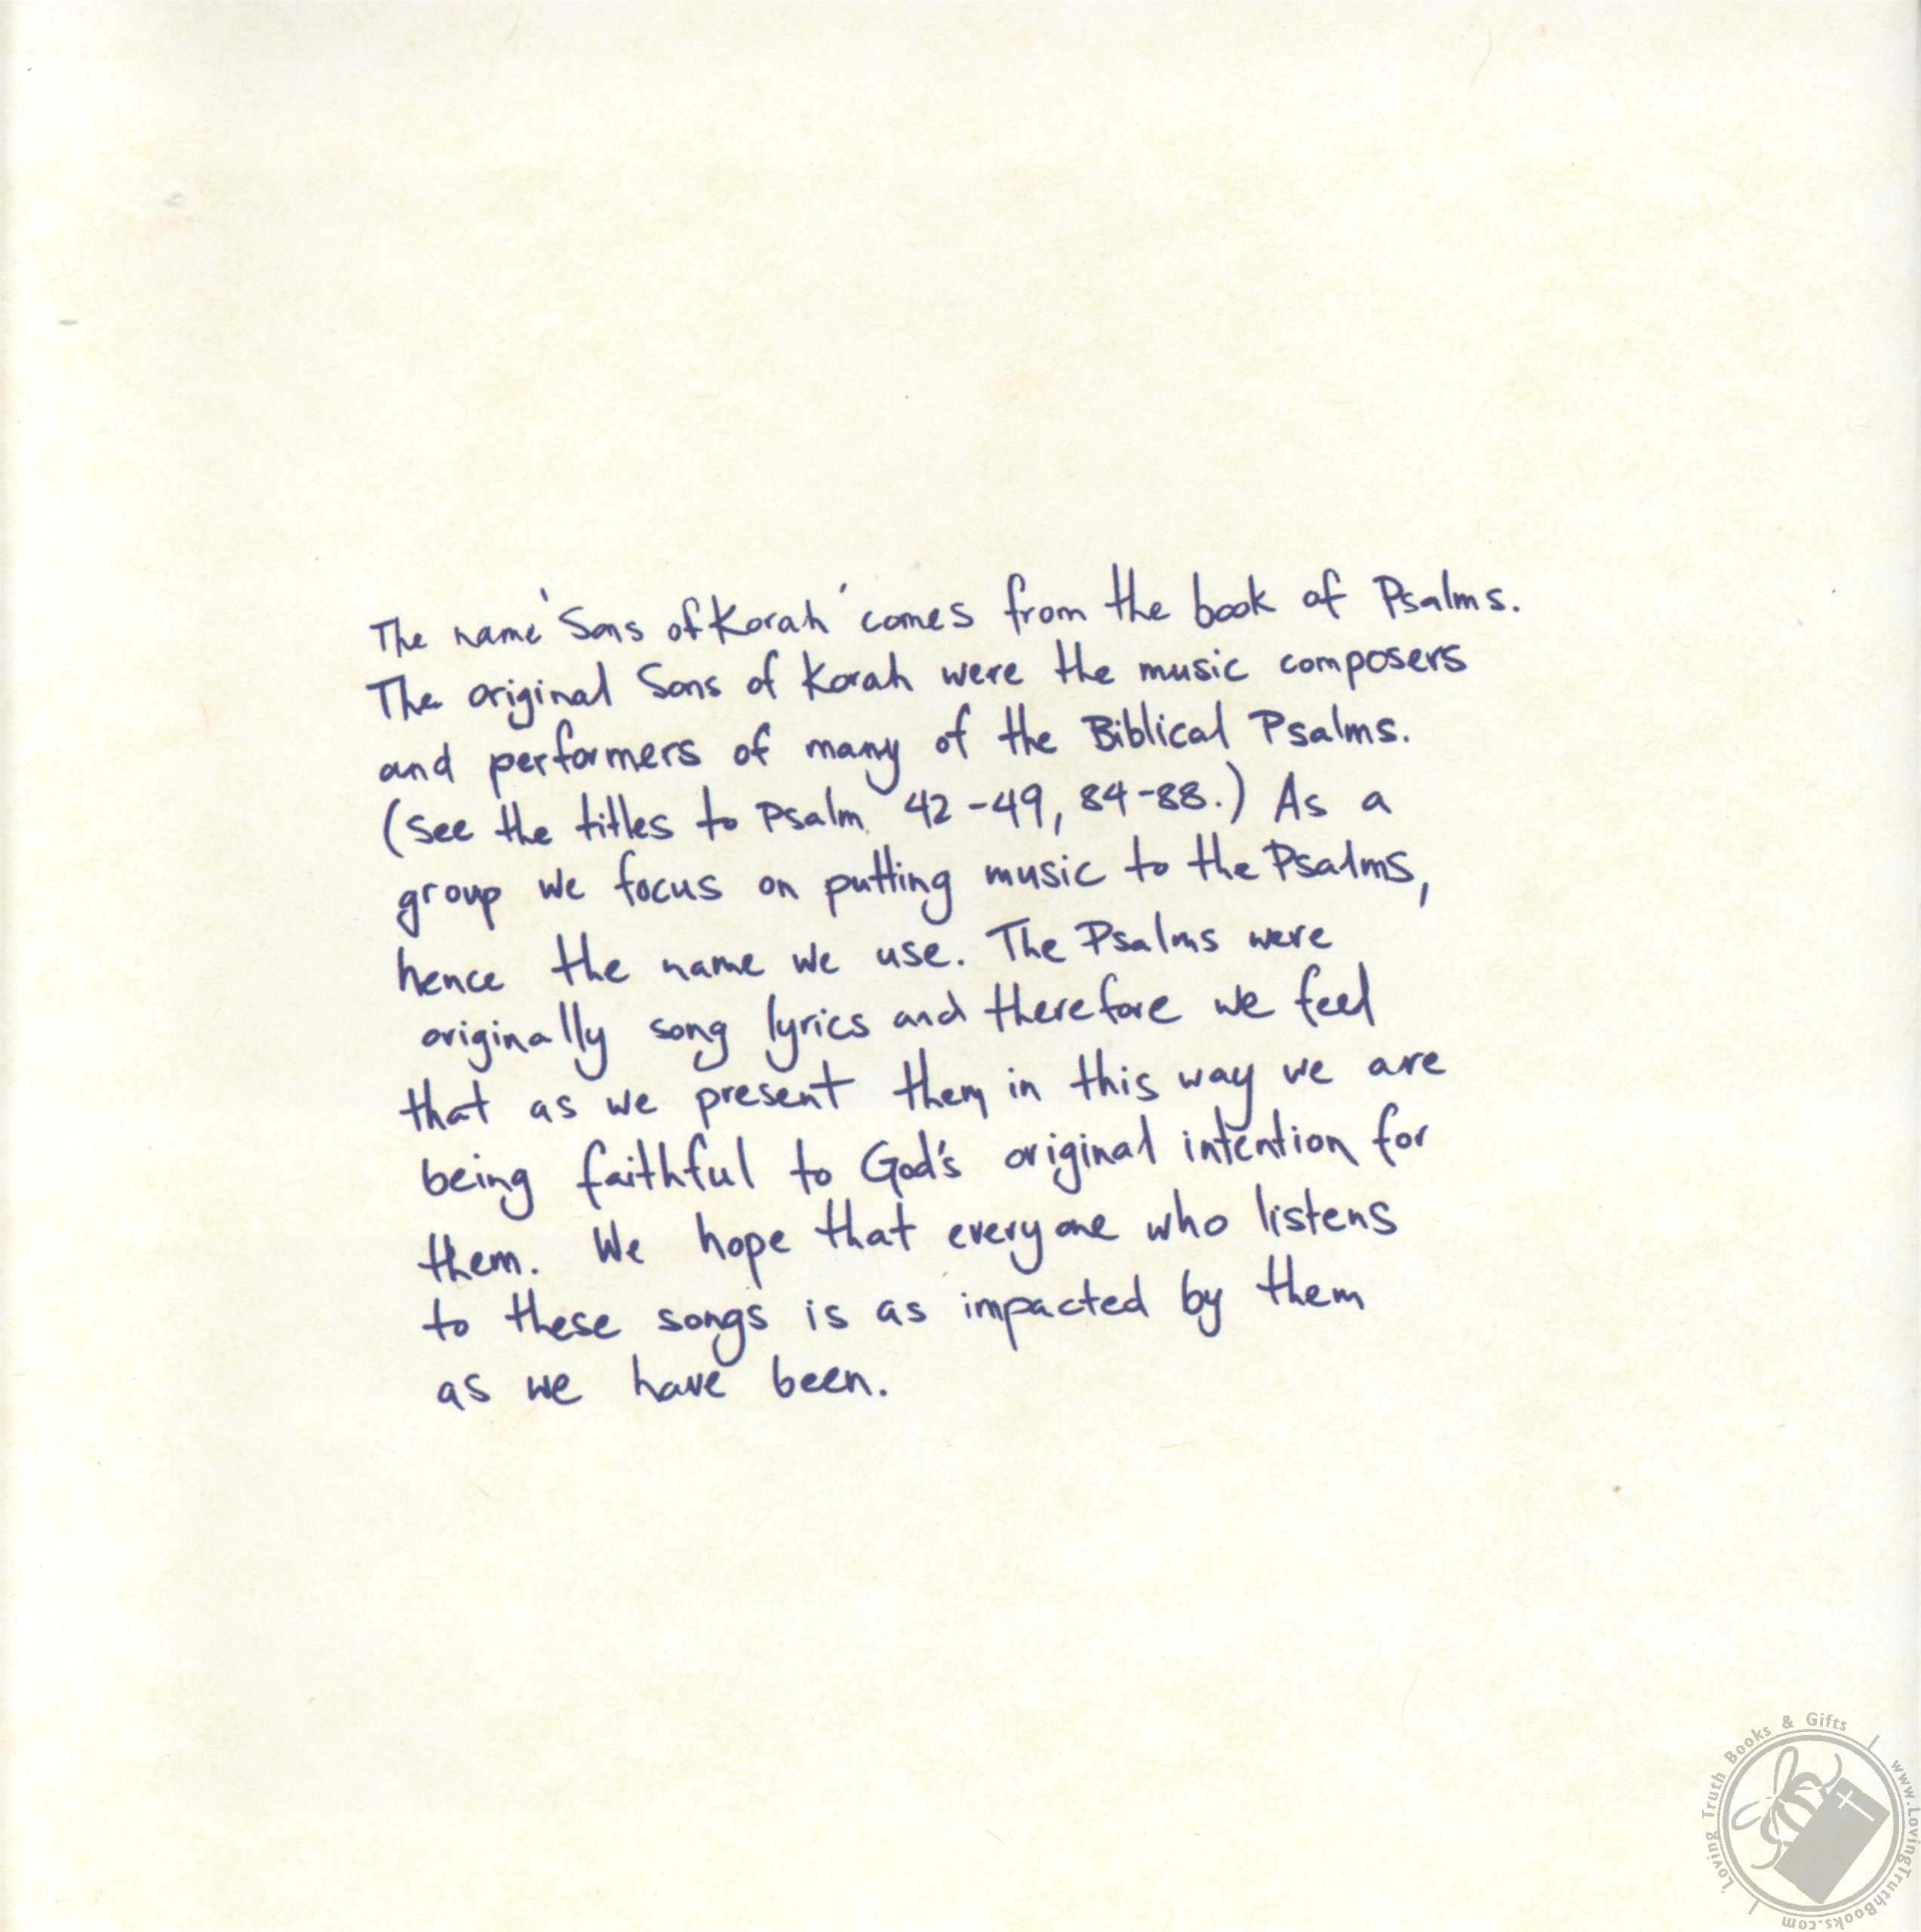 The name 'Sons of Korah' comes from the book of Psalms.
The original Sons of Korah were the music composers
and performers of many of the Biblical Psalms.
(See the titles to Psalm 42-49, 84-88.) As a
group we focus on putting music to the Psalms,
hence the name we use. The Psalms were
originally song lyrics and therefore we feel
that as we present them in this way we are
being faithful to God's original intention for
them. We hope that everyone who listens
to these songs is as impacted by them
as we have been.
Loving Truth Books & Gifts | www.LovingTruthBooks.com |